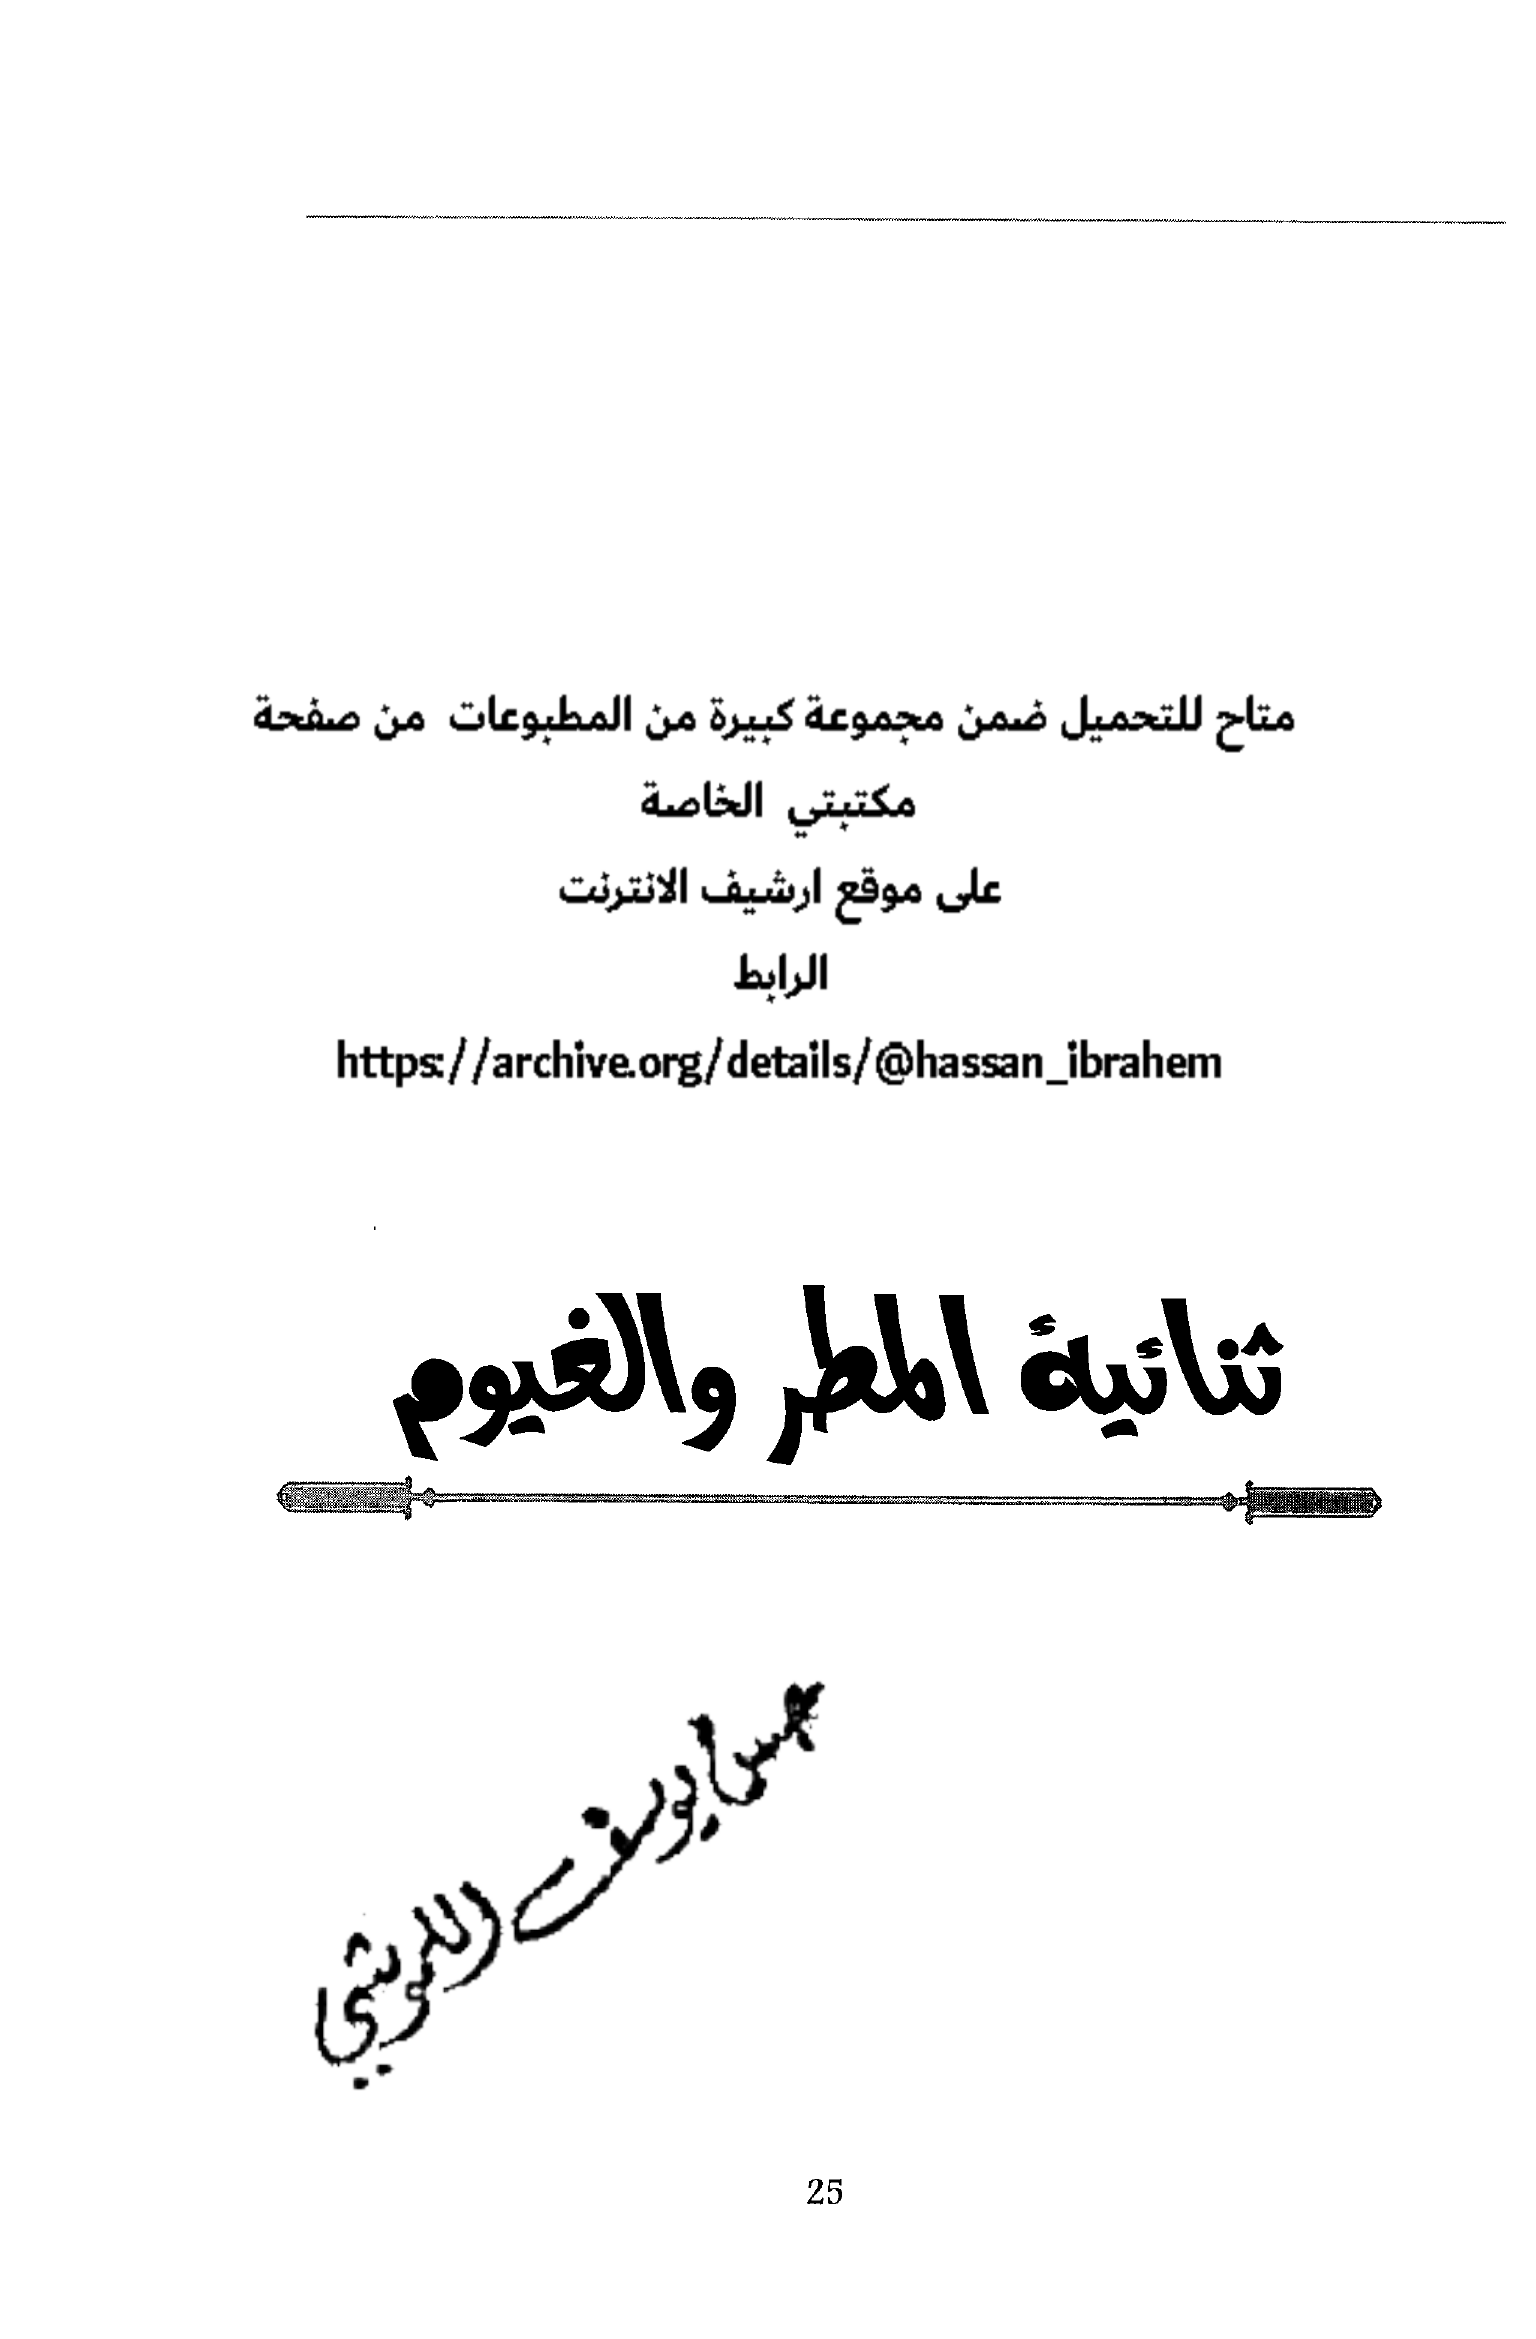 متاح للتحميل ضمن مجموعة كبيرة من المطبوعات من صفحة
مكتبتي الخاصة
على موقع ارشيف الانترنت
الرابط
https://archive.org/details/@hassan_ibrahem
ثنائية المطر والغيوم
يوسف
25